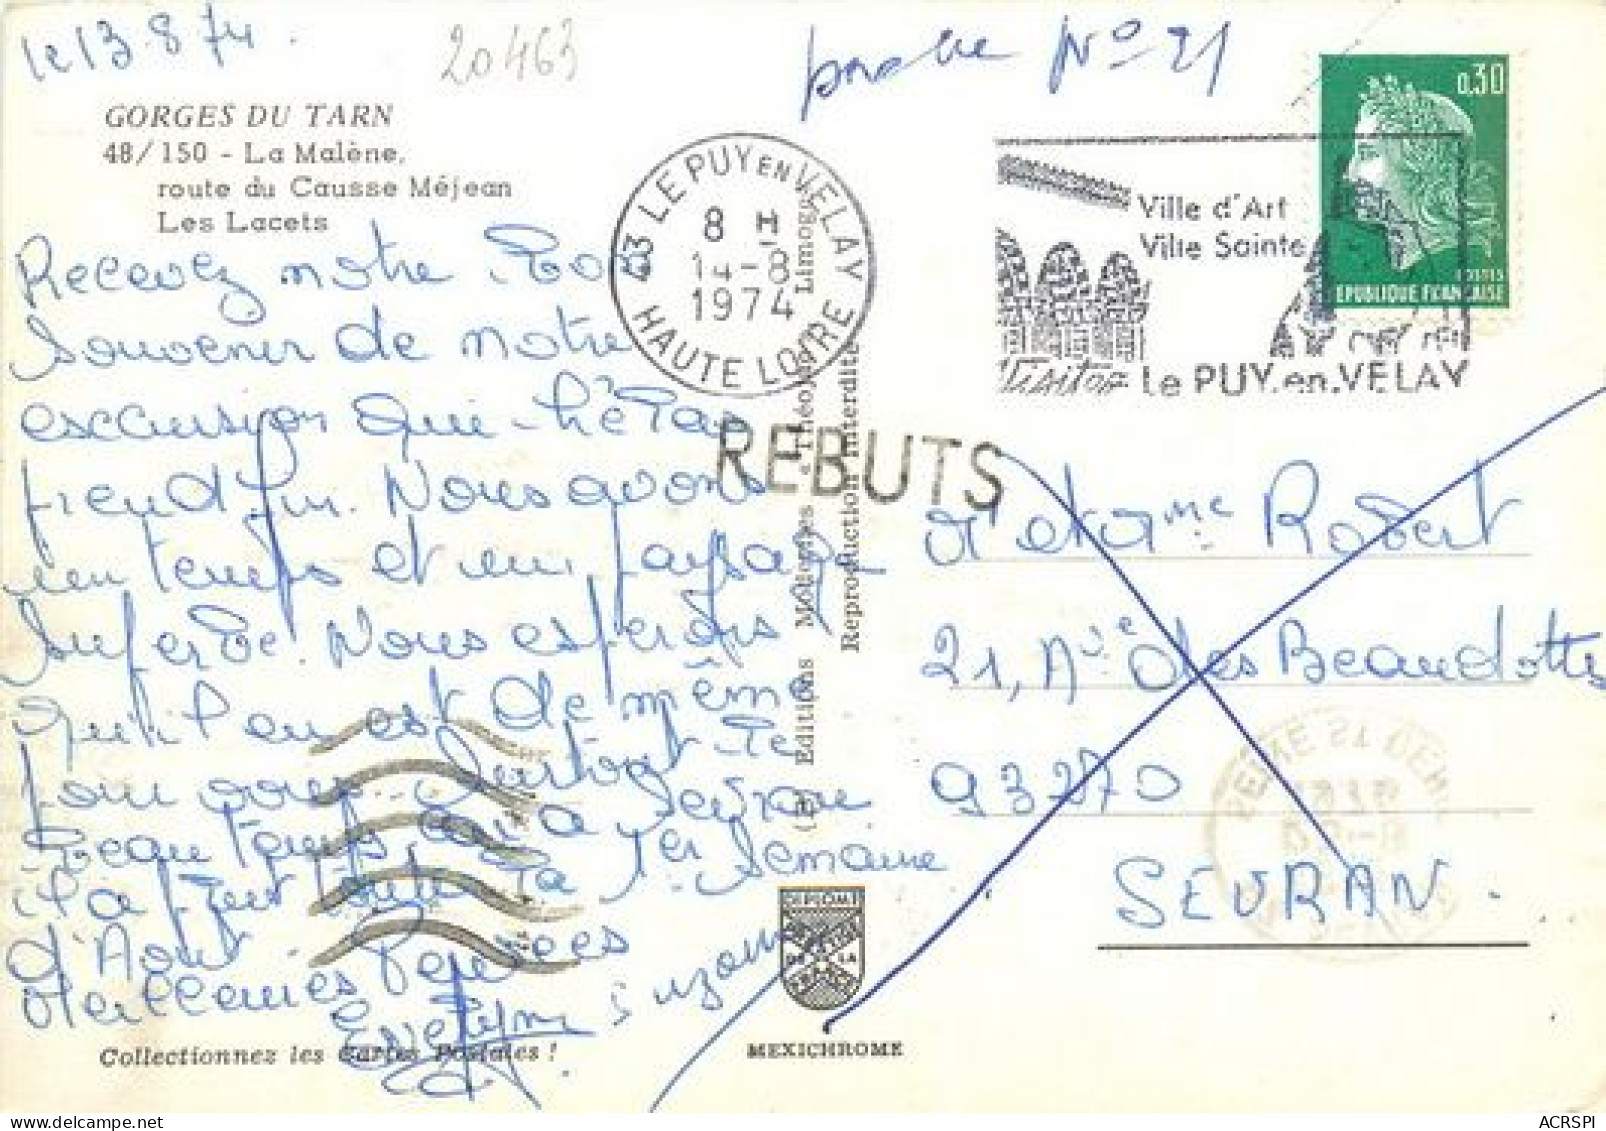 le 13.8.74.
20463
porche N° 21
GORGES DU TARN
48/150 - La Malène,
route du Causse Méjean
Les Lacets
0,30
POSTES
REPUBLIQUE FRANÇAISE
43 LE PUY EN VELAY
8 H
14-8
1974
HAUTE LOIRE
Ville d'Art
Ville Sainte
Visitez Le PUY.en.VELAY
REBUTS
Recevez notre Bon
Souvenir de notre
excursion qui hélas
prend fin. Nous avons
un temps et un paysage
superbe. Nous espérons
qu'il en est de même
pour vous. Surtout le
beau temps, qu'à Sevran
il a plut toute la 1er semaine
d'Août.
Meilleures Pensées
Suzanne
Evelyne
(E) Editions Modernes « Théojac » Limoges
Reproduction interdite
Mr et Mme Robert
21, Ave des Beaudottes
93270
SEVRAN.
SEINE ST DENIS
DIPLOME
DE LA
FRANCE
MEXICHROME
Collectionnez les Cartes Postales !
ACRSPI